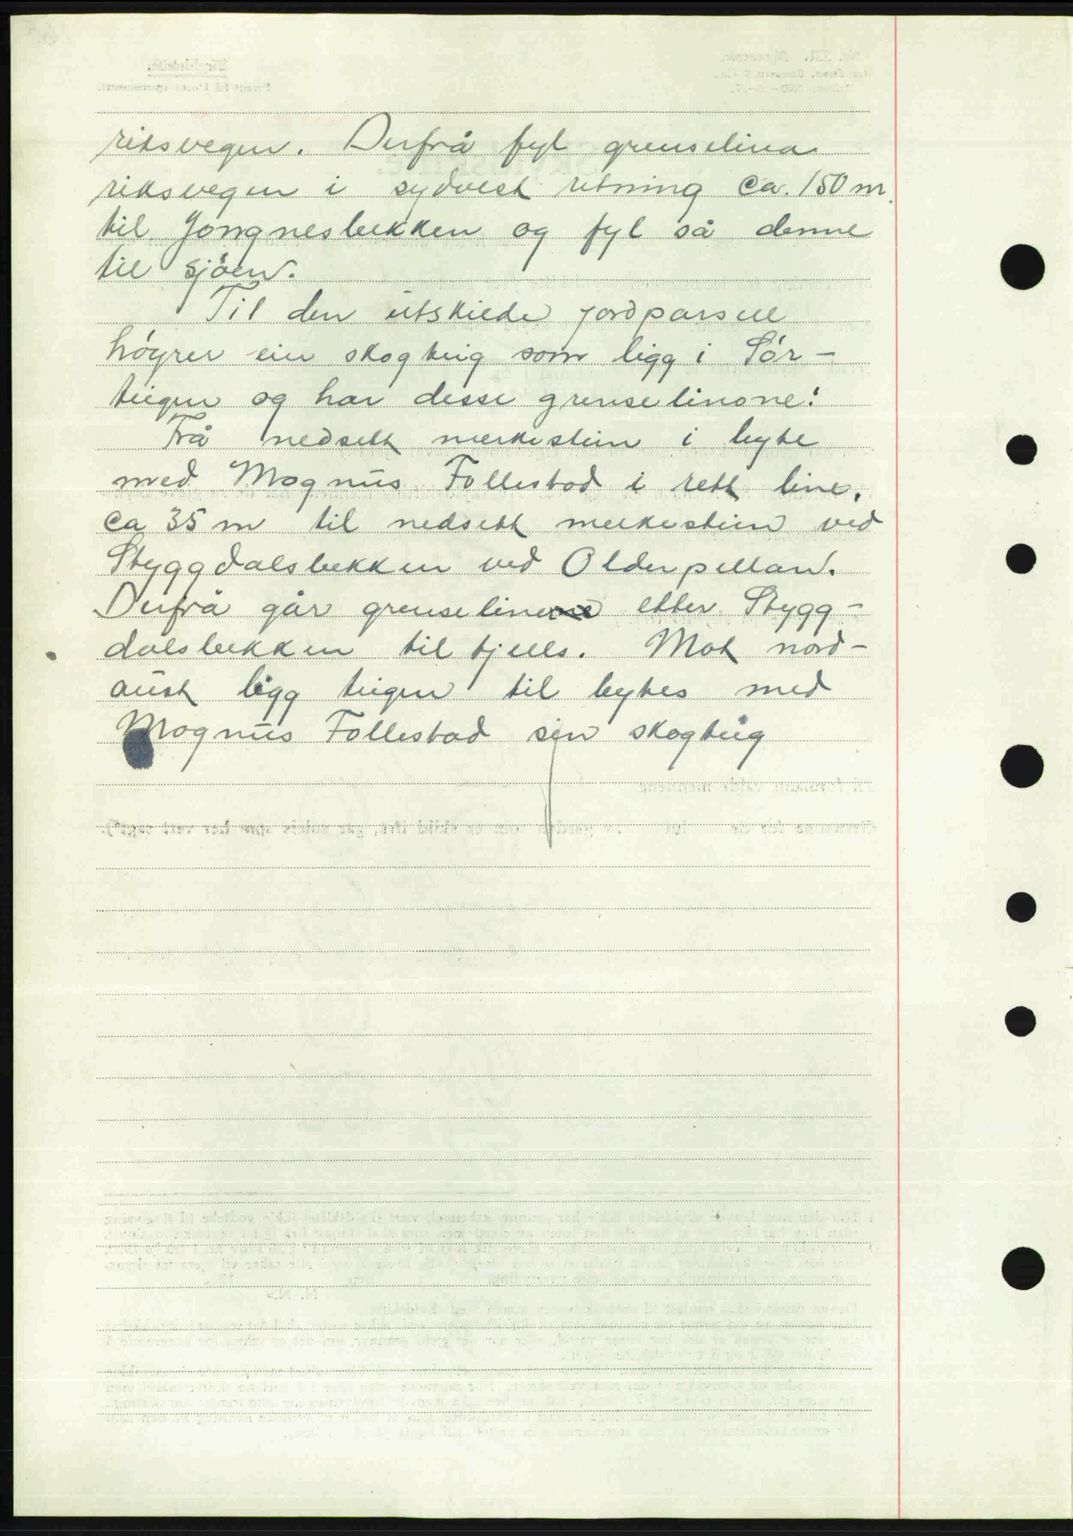 riksvegen. Derfrå fyl grenselina
riksvegen i sydvest retning ca. 150 m.
til Jongnesbekken og fyl så denne
til sjöen.
Til den utskilde jordparsell
höyrer ein skogteig som ligg i Sör-
teigen og har desse grenselinone:
Frå nedsett merkestein i byte
med Magnus Follestad i rett line,
ca 35 m til nedsett merkestein ved
Styggdalsbekken ved Olderpellan.
Derfrå går grenseline etter Stygg-
dalsbekken til fjells. Mot nord-
aust ligg teigen til bytes med
Magnus Follestad sin skogteig